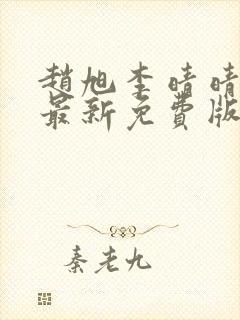 趙旭李晴晴
最新免費版
秦老九